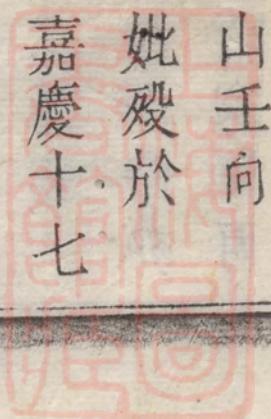 山壬向
妣歿於
嘉慶十七